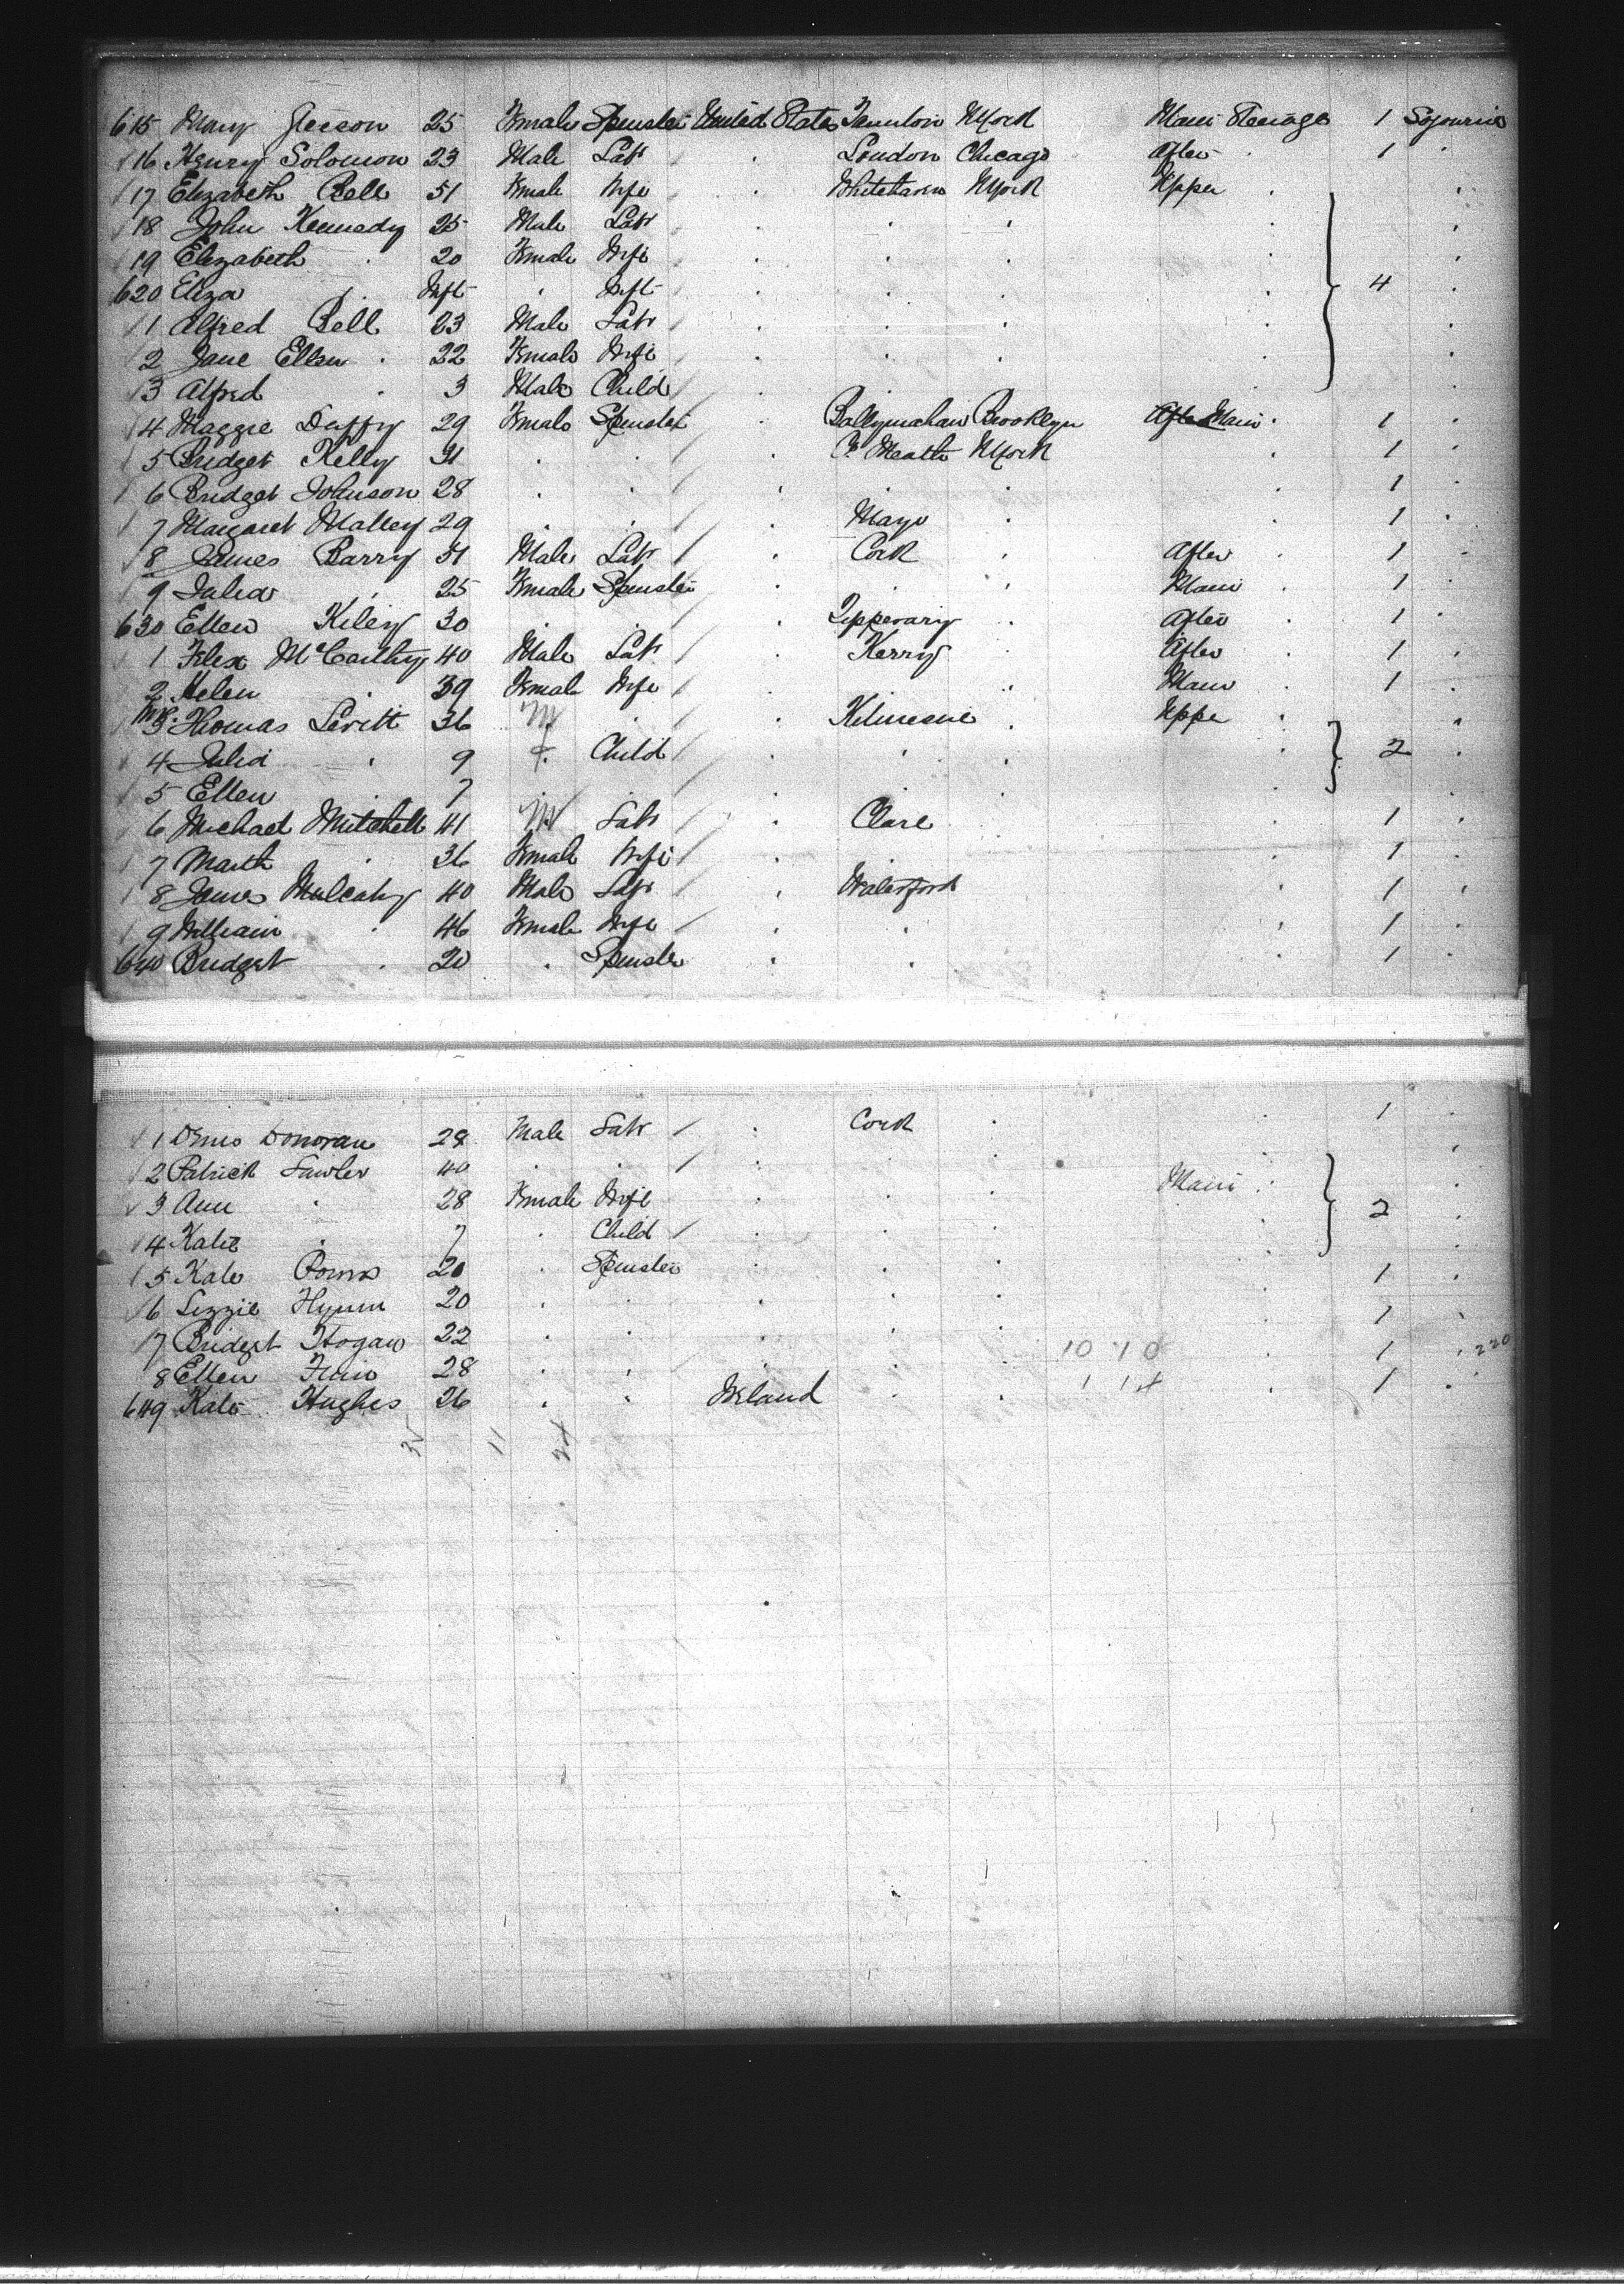 615 Mary Gleeson 25 Female Spinster United States Taunton NYork Main Steerage 1 Sojourner
16 Henry Solomon 23 Male Labr . London Chicago After . 1 .
17 Elizabeth Bell 51 Female Wife . Whitehaven NYork Upper . .
18 John Kennedy 25 Male Labr . . . . .
19 Elizabeth . 20 Female Wife . . . . .
620 Eliza . Inft . Inft . . . . 4 .
1 Alfred Bell 23 Male Labr . . . . .
2 Jane Ellen . 22 Female Wife . . . . .
3 Alfred . 3 Male Child . .
4 Maggie Duffy 29 Female Spinster . Ballymahan Brooklyn After Main . 1 .
5 Bridget Kelly 31 . . . Co. Meath NYork . 1 .
6 Bridget Johnson 28 . . . . . . 1 .
7 Margaret Malley 29 . . . Mayo . . 1 .
8 James Barry 51 Male Labr . Cork . After . 1 .
9 Julia . 25 Female Spinster . . . Main . 1 .
630 Ellen Kiley 30 . . . Tipperary . After . 1 .
1 McCarthy 40 Male Labr . Kerry . After . 1 .
2 Helen . 39 Female Wife . . Main . 1 .
3 Thomas Levitt 36 M . . . Upper . .
4 Julia . 9 f . Child . . . . 2 .
5 Ellen . 7 . . . . .
6 Michael Mitchell 41 M Labr . Clare . 1 .
7 . 36 Female Wife . . 1 .
8 James Mulcahy 40 Male Labr . Waterford . 1 .
9 William . 46 Female Wife . . . 1 .
640 Bridget . 20 . Spinster . . . 1 .
1 Denis Donovan 28 Male Labr . Cork . . 1 .
2 Patrick Lawler 40 . . . . . . .
3 Ann . 28 Female Wife . . . Main . 2 .
4 Katie . 7 . Child . . . . .
5 Kate 20 . Spinster . . . . 1 .
6 Lizzie 20 . . . . . . 1 .
7 Bridget Hogan 22 . . . . . 10 10 . 1 . 220
8 Ellen 28 . . . . . 1 . 1 .
649 Kate Hughes 26 . . Ireland . . .
11